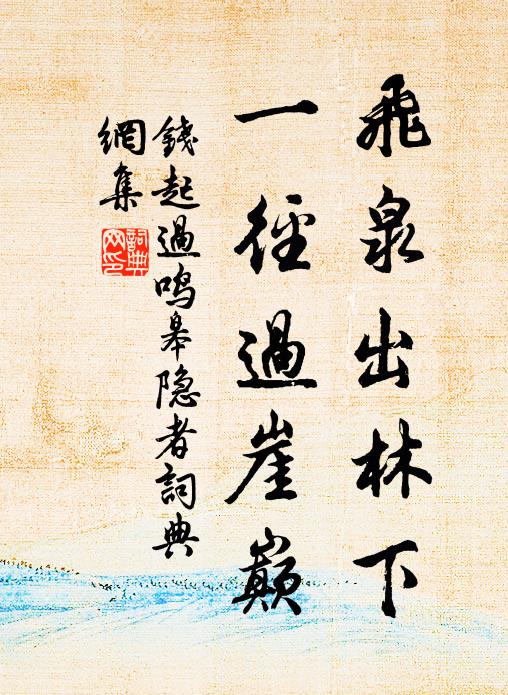 飛泉出林下
一徑過崖巔
錢起過鸣皋隐者詞典
網集
詞典
网印